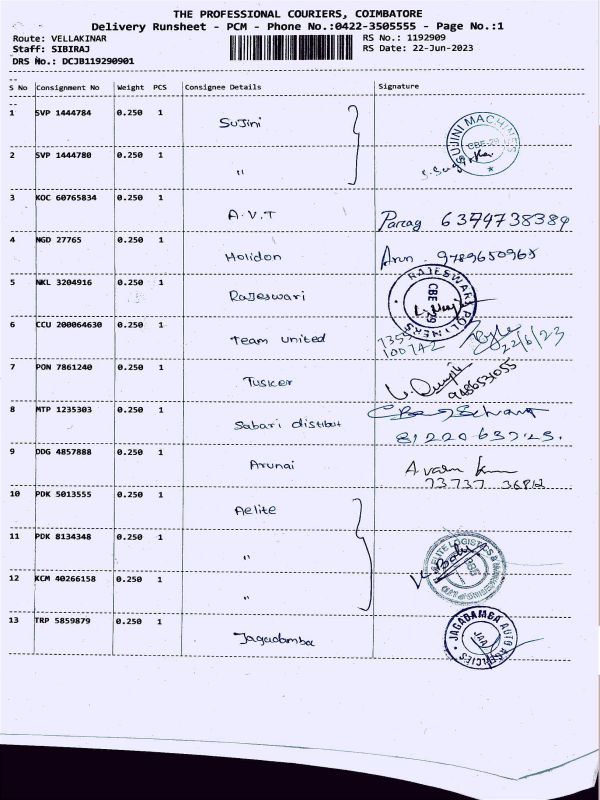 THE PROFESSIONAL COURIERS, COIMBATORE
Delivery Runsheet - PCM - Phone No.:0422-3505555 - Page No.:1
Route: VELLAKINAR RS No.: 1192909
Staff: SIBIRAJ RS Date: 22-Jun-2023
DRS No.: DCJB119290901
S No Consignment No Weight PCS Consignee Details Signature
1 SVP 1444784 0.250 1 Sujini
SUJINI MACHINES
CBE-29
2 SVP 1444780 0.250 1 "
3 KOC 60765834 0.250 1 A.V.T Parag 6374738384
4 NGD 27765 0.250 1 Holidon Arun 9789650965
5 NKL 3204916 0.250 1 Rajeswari
RAJESWARI POLIMERS
CBE 29
6 CCU 200064630 0.250 1 Team United 7355
100742 22/6/23
7 PON 7861240 0.250 1 Tusker 9486531055
8 MTP 1235303 0.250 1 Sabari distibut
81220 63725.
9 DDG 4857888 0.250 1 Arunai
73737
10 PDK 5013555 0.250 1 Aelite
11 PDK 8134348 0.250 1 "
12 KCM 40266158 0.250 1 "
13 TRP 5859879 0.250 1 Jagadamba
JAGADAMBA AUTO AGENCIES
JAA